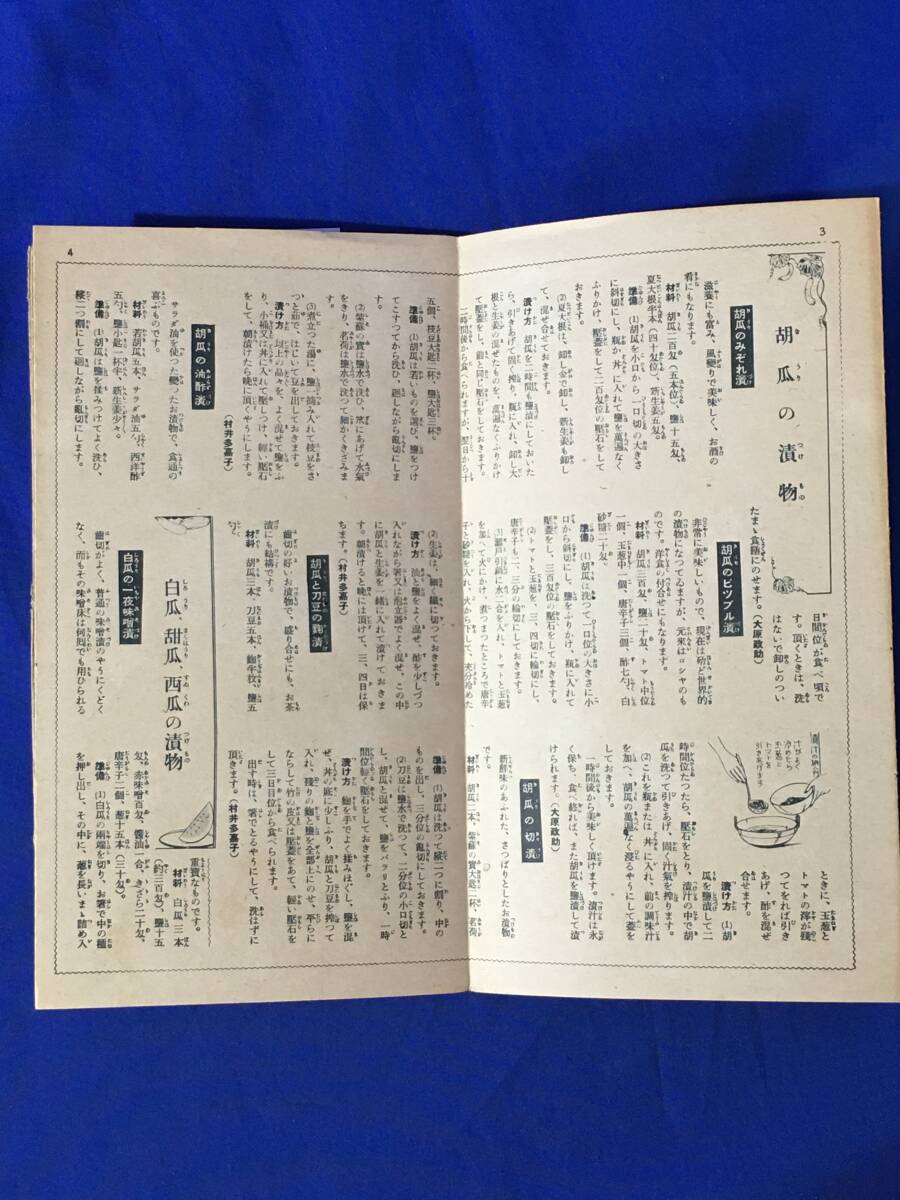 3
胡瓜の漬物
胡瓜のみぞれ漬
滋養にも富み、風變りで美味しく、お酒の
肴にもなります。
材料　胡瓜二百匁(五本位)、鹽十五匁、
夏大根半本(四十匁位)、新生姜五匁。
準備　(1)胡瓜を小口から一口切の大きさ
に斜切にし、瓶か丼に入れて鹽を萬遍なく
ふりかけ、壓蓋をして二百匁位の壓石をして
おきます。
(2)夏大根は、卸し金で卸し、新生姜も卸し
て、混ぜ合せておきます。
漬け方　胡瓜を二時間も鹽漬にしておいた
ら、引きあげて固く搾り、瓶に入れ、卸し大
根と生姜の混ぜたものを、萬遍なくふりかけ
て壓蓋をし、前と同じ壓石をしておきます。
二時間後から食べられますが、翌日から十
日間位が食べ頃で
す。頂くときは、洗
はないで卸しのつい
たまゝ食膳にのせます。(大原政助)
胡瓜のピツブル漬
非常に美味しいもので、現在は殆ど世界的
の漬物になつてゐますが、元來はロシヤのも
のです。洋食の付合せにもなります。
材料　胡瓜三百匁、鹽二十匁、トマト中位
一個、玉葱中一個、唐辛子三個、酢七勺、白
砂糖二十匁。
準備　(1)胡瓜は洗つて、一口位の大きさに小
口から斜切にし、鹽をふりかけ、瓶に入れて
壓蓋をし、三百匁位の壓石をしておきます。
(2)トマトと玉葱を、三、四切に輪切にし、
唐辛子も二、三分の輪切にしておきます。
(3)瀨戸引鍋に水二合を入れ、トマトと玉葱
を加へて火にかけ、煮つまつたところで唐辛
子と砂糖を入れ、火からおろして、充分冷めた
ときに、玉葱と
トマトの薄が殘
つてをれば引き
あげ、酢を混ぜ
合せます。
漬け方　(1)胡
瓜を鹽漬して二
時間位たつたら、壓石をとり、漬汁の中で胡
瓜を洗つて引きあげ、固く汁氣を搾ります。
(2)これを瓶または、丼に入れ、前の調味汁
を加へ、胡瓜の萬遍なく浸るやうにして蓋を
しておきます。
一時間後から美味しく頂けます。漬汁は永
く保ち、食べ終れば、また胡瓜を鹽漬して漬
けられます。(大原政助)
胡瓜の切漬
新鮮味のあふれた、さつぱりとしたお漬物
です。
材料　胡瓜二本、紫蘇の實大匙二杯、茗荷
4
五個、枝豆大匙二杯、鹽大匙三杯。
準備　(1)胡瓜は若いものを選び、鹽をつけ
てこすつてから洗ひ、廻しながら亂切にしま
す。
(2)紫蘇の實は鹽水で洗ひ、笊にあげて水氣
をきり、茗荷は鹽水で洗つて細かくきざみま
す。
(3)煮立つた湯に、鹽一摘み入れて枝豆をさ
つと茹で、はじいて豆を出しておきます。
漬け方　以上の品々を、よく混ぜて鹽をふ
り、小桶又は丼に入れて壓しつけ、輕い壓石
をして、朝漬けたら晩に頂くやうにします。
(村井多嘉子)
胡瓜の油酢漬
サラダ油を使つた變つたお漬物で、食通の
喜ぶものです。
材料　若胡瓜五本、サラダ油五勺、西洋酢
五勺、鹽小匙一杯半、新生姜少々。
準備　(1)胡瓜は鹽を揉みつけてよく洗ひ、
縱二つ割にして廻しながら亂切にします。
(2)生姜は、細い纎に切つておきます。
漬け方　油と鹽をよく混ぜ、酢を少しづつ
入れながら箸又は泡立器でよく混ぜ、この中
に胡瓜と生姜を一緒に入れて漬けておきま
す。朝漬けると晩に頂けて、三、四日は保
ちます。(村井多嘉子)
胡瓜と刀豆の麴漬
齒切の好いお漬物で、盛り合せにも、お茶
漬にも結構です。
材料　胡瓜三本、刀豆五本、麴半枚、鹽五
勺。
準備　(1)胡瓜は洗つて縱二つに割り、中の
ものを出し、三分位の亂切にしておきます。
(2)刀豆は鹽水で洗つて、二分位の小口切と
し、胡瓜と混ぜて、鹽をパラリとふり、一時
間位輕く壓石をしておきます。
漬け方　麴を手でよく揉みほぐし、鹽を混
ぜ、丼の底に少しふり、胡瓜と刀豆を搾つて
入れ、殘りの麴と鹽を全部上にのせ、平らに
ならして竹の皮又は壓蓋をあて、輕い壓石を
して三日目位から食べられます。
出す時は、箸でとるやうにして、洗はずに
頂きます。(村井多嘉子)
白瓜、甜瓜、西瓜の漬物
白瓜の一夜味噌漬
齒切がよく、普通の味噌漬のやうにくどく
なく、而もその味噌床は何囘でも用ひられる
重寶なものです。
材料　白瓜、三本
(約三百匁)、鹽十五
匁、赤味噌百匁、醬油一合、きざら二十匁、
唐辛子二個、葱十五本(三十匁)。
準備　(1)白瓜の兩端を切り、お箸で中の種
を押し出し、その中に、葱を長いまゝ詰め入